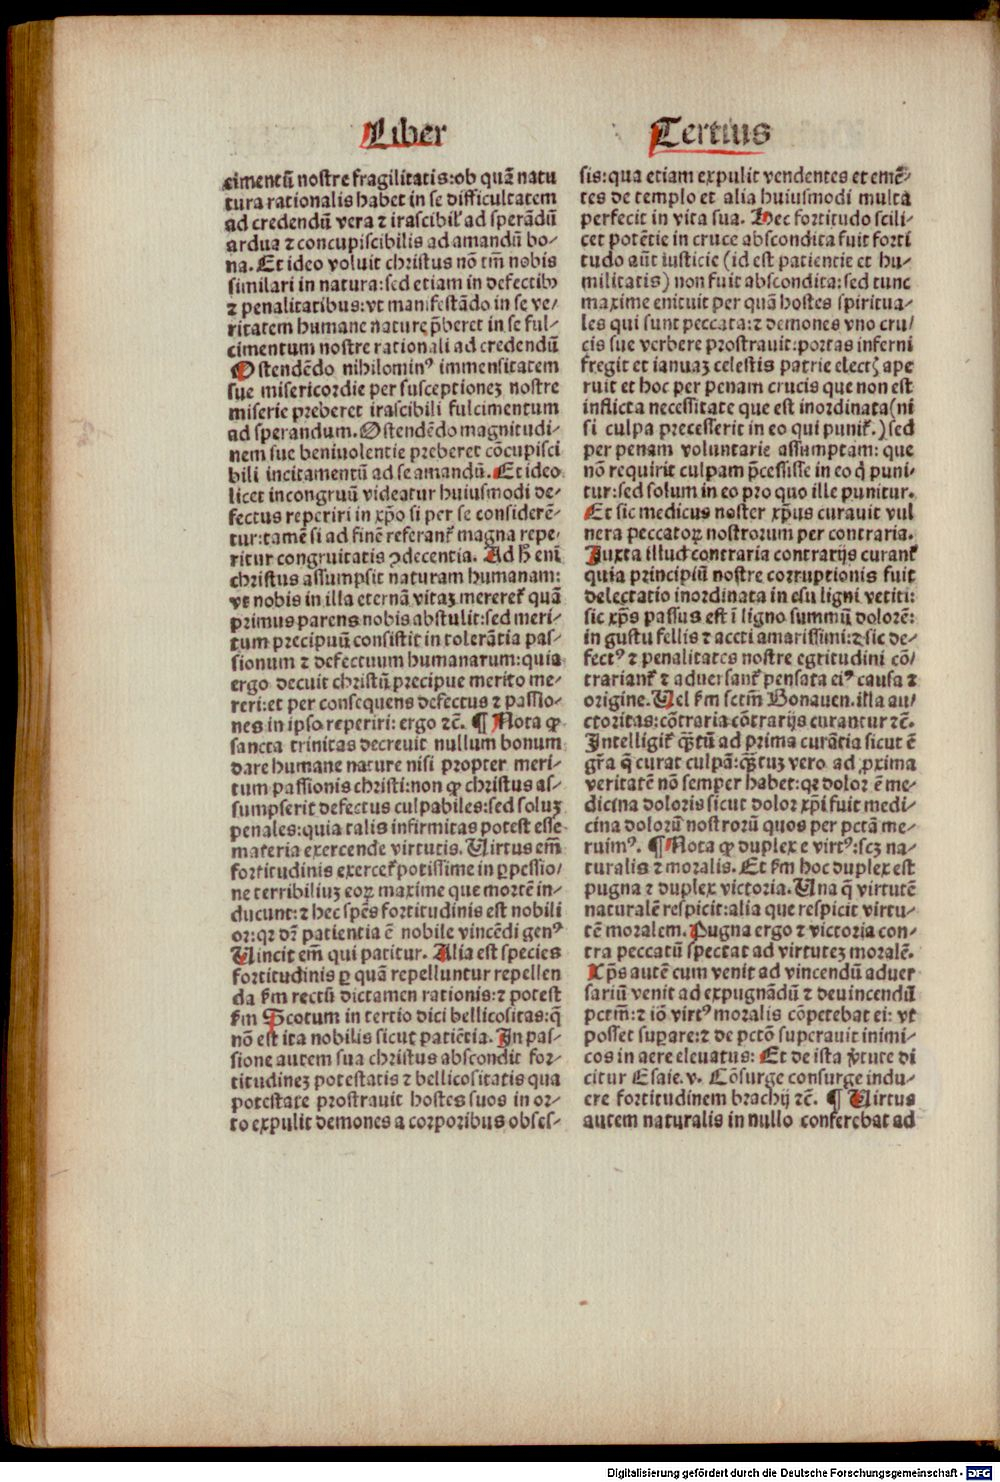 Liber
Tertius
cimentū nostre fragilitatis:ob quā natu
tura rationalis habet in se difficultatem
ad credendū vera ⁊ irascibil' ad sperādū
ardua ⁊ concupiscibilis ad amandū bo-
na. Et ideo voluit christus nō tm̄ nobis
similari in natura:sed etiam in defectibꝫ
⁊ penalitatibus:vt manifestādo in se ve-
ritatem humane nature p̄beret in se ful-
cimentum nostre rationali ad credendū
Ostendēdo nihilominꝰ immensitatem
sue misericordie per susceptionez nostre
miserie preberet irascibili fulcimentum
ad sperandum. Ostendēdo magnitudi-
nem sue beniuolentie preberet cōcupisci
bili incitamentū ad se amandū. Et ideo
licet incongruū videatur huiusmodi de-
fectus reperiri in xp̄o si per se considerē-
tur:tamē si ad finē referanť magna repe-
ritur congruitatis ꝯdecentia. Ad h̄ enī
christus assumpsit naturam humanam:
vt nobis in illa eternā vitaz mereretˀ quā
primus parens nobis abstulit:sed meri-
tum precipuū consistit in tolerātia pas-
sionum ⁊ defectuum humanarum:quia
ergo decuit christū precipue merito me-
reri:et per consequens defectus ⁊ passio-
nes in ipso reperiri: ergo ⁊c̄. ¶ Nota ꝙ
sancta trinitas decreuit nullum bonum
dare humane nature nisi propter meri-
tum passionis christi:non ꝙ christus as-
sumpserit defectus culpabiles:sed soluz
penales:quia talis infirmitas potest esse
materia exercende virtutis. Virtus em̄
fortitudinis exercetˀ potissime in ꝑpessio-
ne terribiliuz eoꝝ maxime que mortē in-
ducunt:⁊ hec spēs fortitudinis est nobili
or:qꝛ dr̄ patientia ē nobile vincēdi genꝰ
Vincit em̄ qui patitur. Alia est species
fortitudinis ꝑ quā repelluntur repellen
da ẜm rectū dictamen rationis:⁊ potest
ẜm Scotum in tertio dici bellicositas:q̄
nō est ita nobilis sicut patiētia. In pas-
sione autem sua christus abscondit for-
titudinez potestatis ⁊ bellicositatis qua
potestate prostrauit hostes suos in or-
to expulit demones a corporibus obses-
sis:qua etiam expulit vendentes et emē-
tes de templo et alia huiusmodi multa
perfecit in vita sua. Hec fortitudo scili-
cet potētie in cruce abscondita fuit forti
tudo aūt iusticie (id est patientie et hu-
militatis) non fuit abscondita:sed tunc
maxime enituit per quā hostes spiritua-
les qui sunt peccata:⁊ demones vno cru-
cis sue verbere prostrauit:portas inferni
fregit et ianuaz celestis patrie electꝝ ape
ruit et hoc per penam crucis que non est
inflicta necessitate que est inordinata(ni
si culpa precesserit in eo qui punitˀ.)sed
per penam voluntarie assumptam: que
nō requirit culpam p̄cessisse in eo q̇ puni-
tur:sed solum in eo pro quo ille punitur.
Et sic medicus noster xp̄us curauit vul
nera peccatoꝝ nostrorum per contraria.
Iuxta illud contraria contrarijs curantˀ
quia principiū nostre corruptionis fuit
delectatio inordinata in esu ligni vetiti:
sic xp̄s passus est ī ligno summū dolorē:
in gustu fellis ⁊ aceti amarissimi:⁊ sic de-
fectꝰ ⁊ penalitates nostre egritudini cō-
trariantˀ ⁊ aduersantˀ pensata eiꝰ causa ⁊
origine. Vel ẜm sctm̄ Bonauen. illa au-
ctoritas:cōtraria cōtrarijs curantur ⁊c̄.
Intelligitˀ q̄ꝫtū ad prima curātia sicut ē
gr̄a q̄ curat culpā:q̄ꝫtuz vero ad ꝓxima
veritatē nō semper habet:qꝛ dolor ē me-
dicina doloris sicut dolor xp̄i fuit medi-
cina dolorū nostrorū quos per pctā me-
ruimꝰ. ¶ Nota ꝙ duplex e virtꝰ:scꝫ na-
turalis ⁊ moralis. Et ẜm hoc duplex est
pugna ⁊ duplex victoria. Una q̄ virtutē
naturalē respicit:alia que respicit virtu-
tē moralem. Pugna ergo ⁊ victoria con-
tra peccatū spectat ad virtutez moralē.
Xp̄s autē cum venit ad vincendū aduer
sariū venit ad expugnādū ⁊ deuincendū
pctm̄:⁊ iō virtꝰ moralis cōpetebat ei: vt
posset suꝑare:⁊ de pctō superauit inimi-
cos in aere eleuatus: Et de ista v̓tute di
citur Esaie. v. Cōsurge consurge indu-
ere fortitudinem brachij ⁊c̄. ¶ Virtus
autem naturalis in nullo conferebat ad
Digitalisierung gefördert durch die Deutsche Forschungsgemeinschaft - DFG